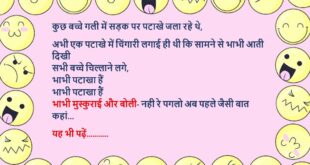 कुछ बच्चे गली में सड़क पर पटाखे जला रहे थे,
अभी एक पटाखे में चिंगारी लगाई ही थी कि सामने से भाभी आती
दिखी
सभी बच्चे चिल्लाने लगे,
भाभी पटाखा हैं
भाभी पटाखा हैं
भाभी मुस्कुराई और बोली- नही रे पगलो अब पहले जैसी बात
कहां...
यह भी पढ़ें...........